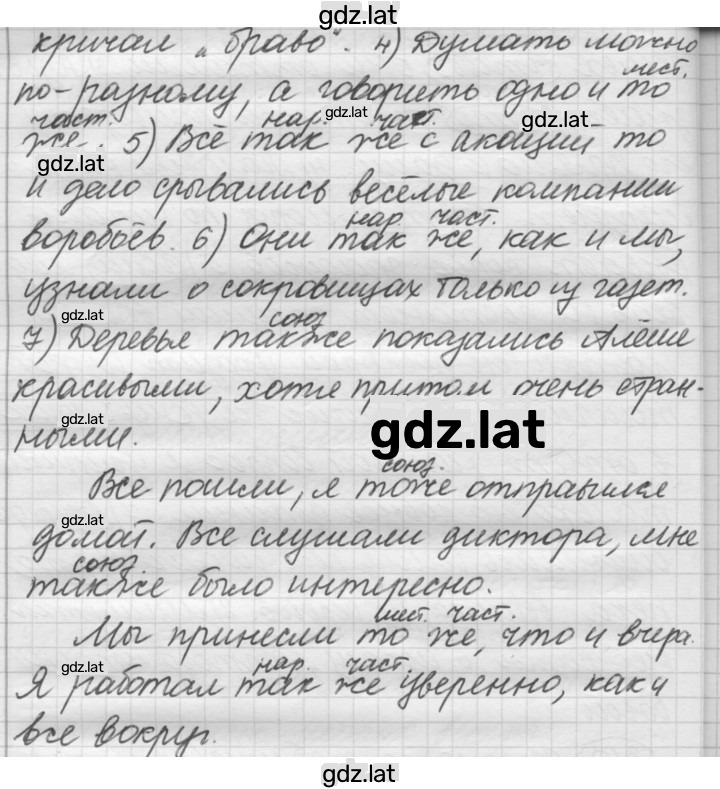 gdz.lat
кричал „браво“. 4) Думать можно
мест.
по-разному, а говорить одно и то
част. нар. gdz.lat част. gdz.lat
же. 5) Всё так же с акации то
gdz.lat
и дело срывались весёлые компании
нар. част.
воробьёв. 6) Они так же, как и мы,
узнали о сокровищах только из газет.
gdz.lat союз
7) Деревья также показались Алёше
красивыми, хотя притом очень стран-
gdz.lat gdz.lat
ными.
союз.
Все пошли, я тоже отправился
gdz.lat
домой. Все слушали диктора, мне
союз.
также было интересно.
мест. част.
Мы принесли то же, что и вчера.
gdz.lat нар. част.
Я работал так же уверенно, как и
все вокруг.
gdz.lat